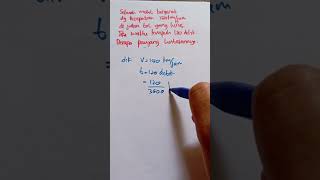 Sebuah mobil bergerak
dg kecepatan 120km/jam
di jalan tol yang lurus,
Jika waktu tempuh 120 detik.
Berapa panjang lintasannya.
dik V = 120 km/jam
t = 120 detik
= 120
3600